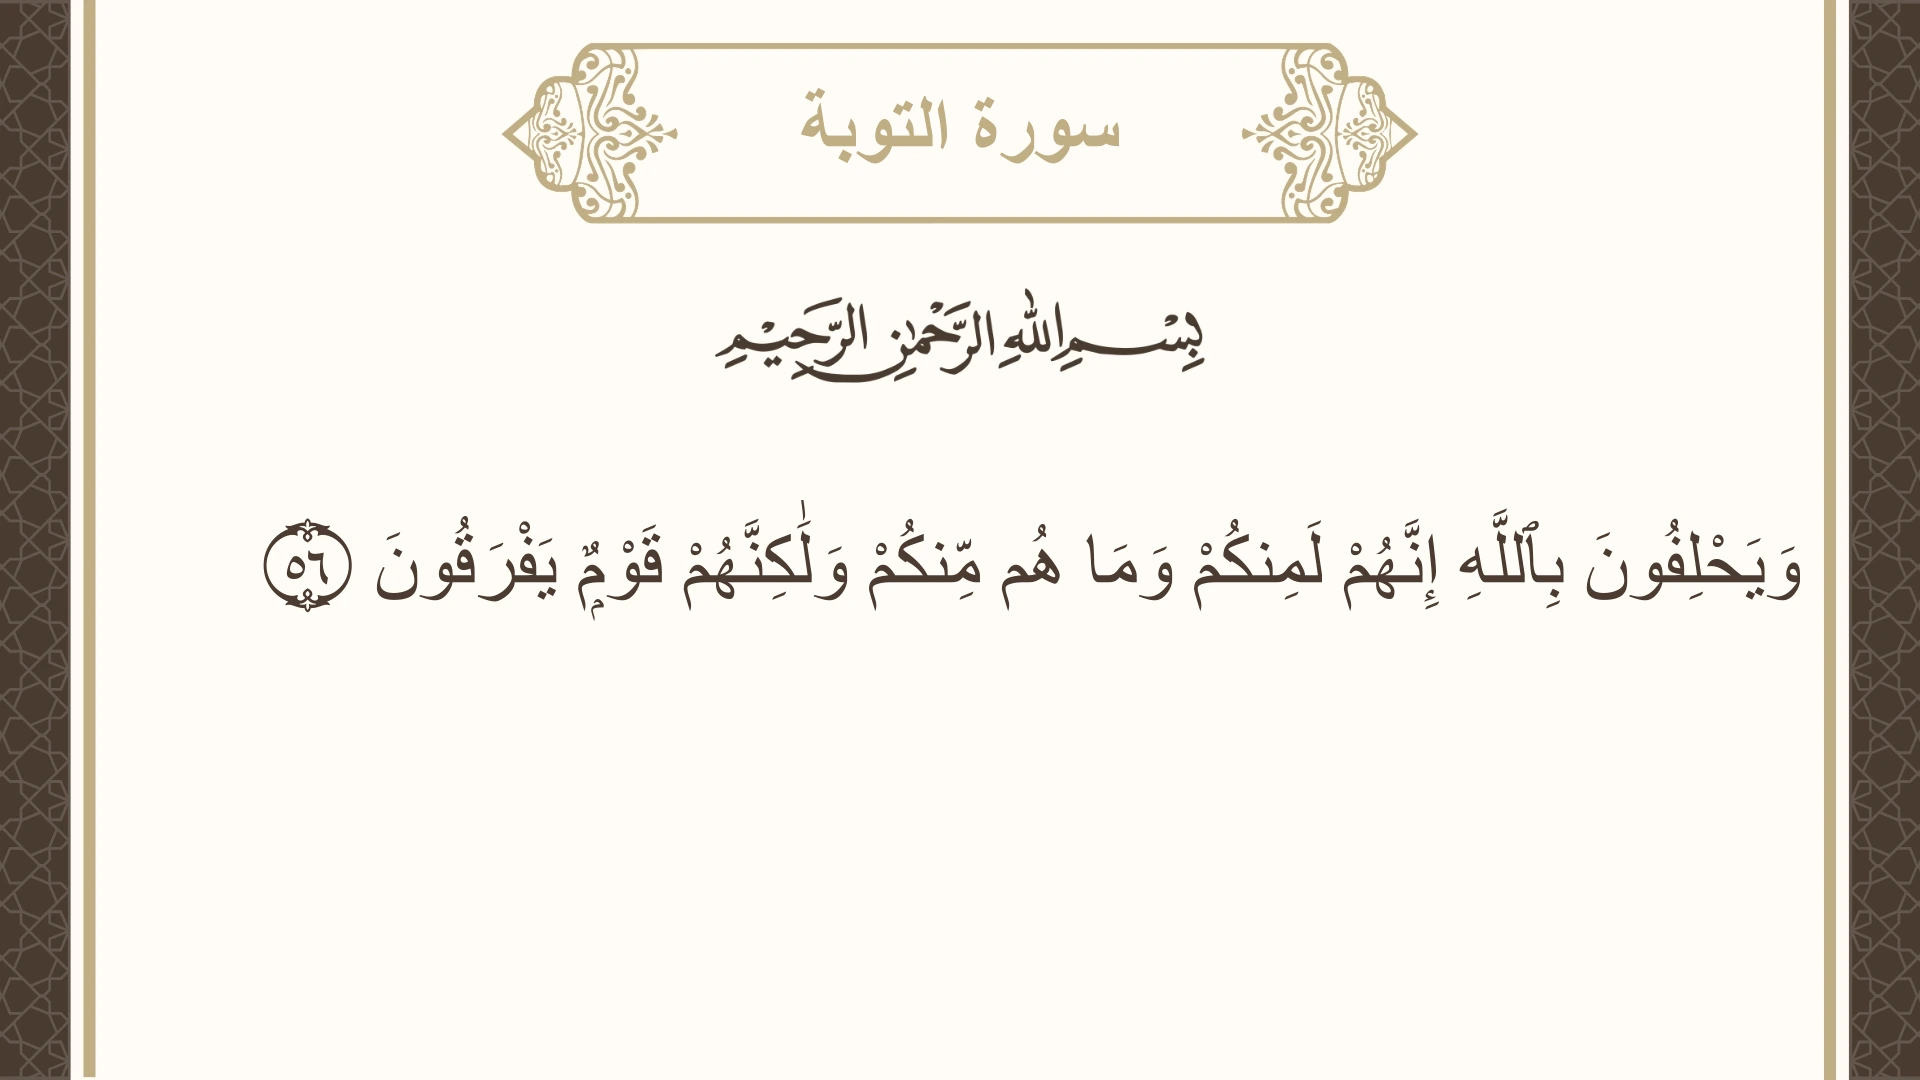 سورة التوبة
بِسْمِ اللهِ الرَّحْمٰنِ الرَّحِيْمِ
وَيَحْلِفُونَ بِٱللَّهِ إِنَّهُمْ لَمِنكُمْ وَمَا هُم مِّنكُمْ وَلَٰكِنَّهُمْ قَوْمٌۭ يَفْرَقُونَ ٥٦